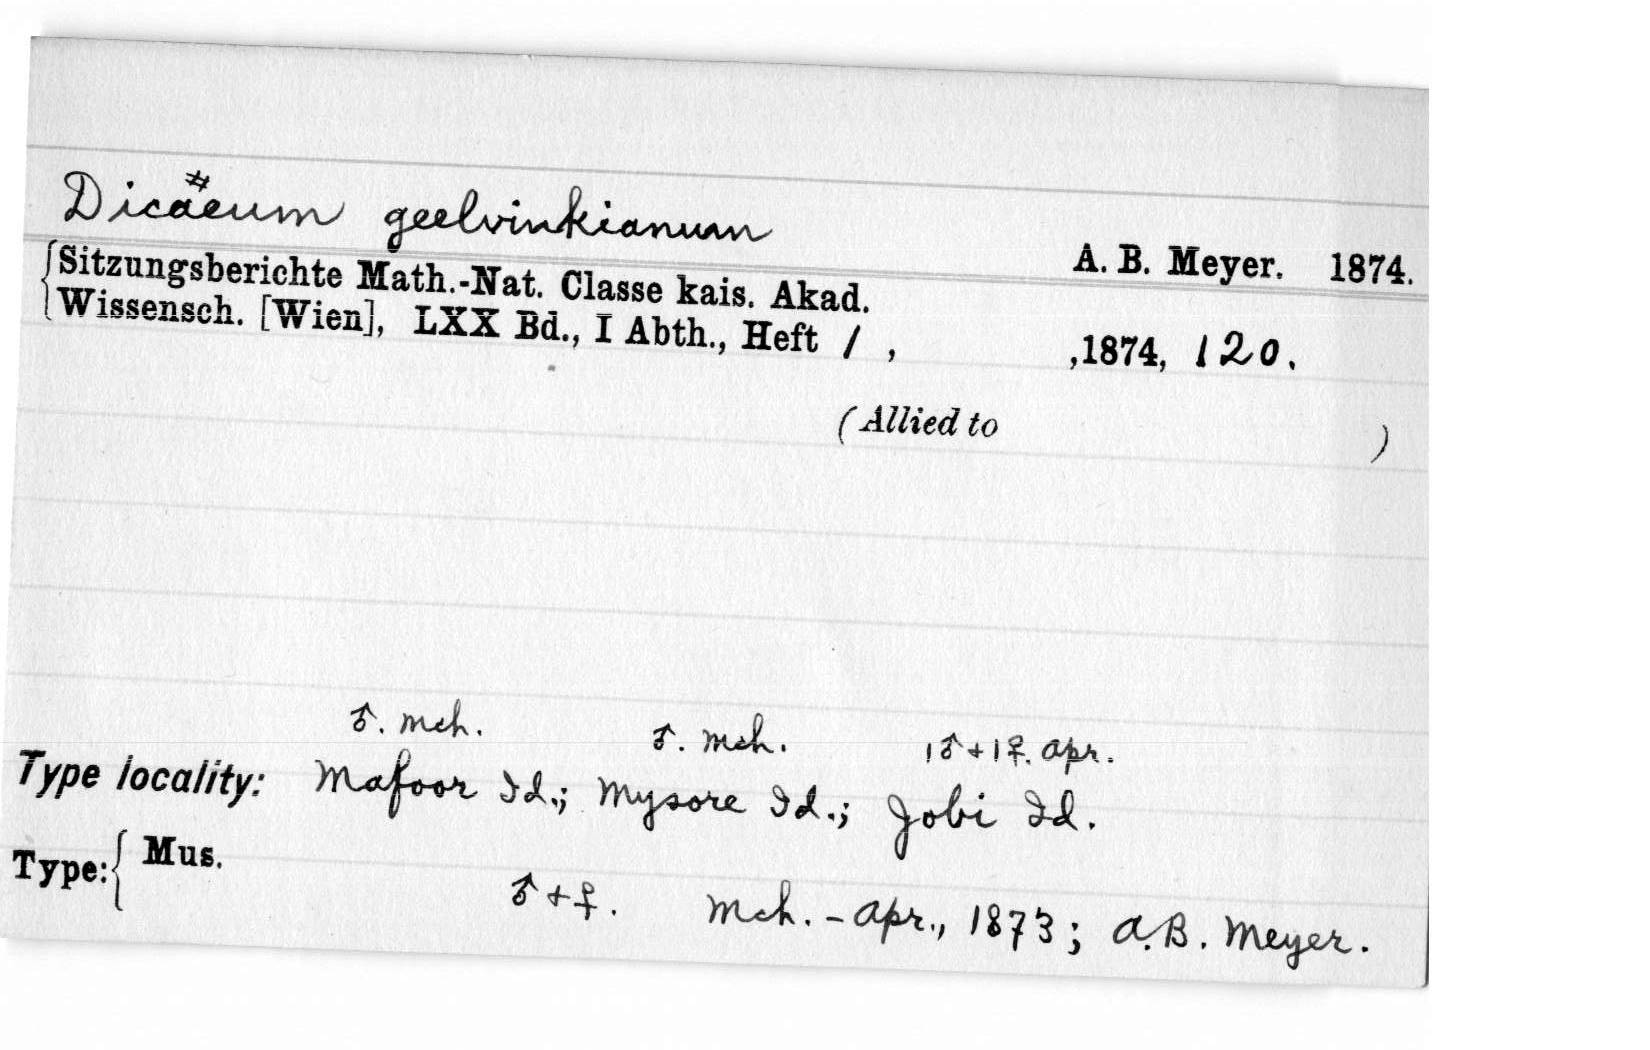 #
Dicaeum geelvinkianum
A. B. Meyer. 1874.
Sitzungsberichte Math.-Nat. Classe kais. Akad.
Wissensch. [Wien], LXX Bd., I Abth., Heft 1 , ,1874, 120.
(Allied to )
♂. Mch. ♂. Mch. 1♂+1♀. Apr.
Type locality: Mafoor Id.; Mysore Id.; Jobi Id.
Type: { Mus.
♂+♀. Mch.-Apr., 1873; A.B. Meyer.